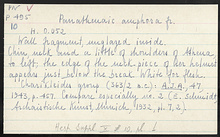 NV V
p 495
10
Panathenaic amphora fr.
H. 0.052
Wall fragment, unglazed inside.
Chin, neck and a little of shoulders of Athena
to left; the edge of the neck piece of her helmet
appears just below the break. White for flesh.
Charikleides group (363/2 B.C.) A.J.A. 47,
1943, p. 457. Compare especially no. 2 (E. Schmidt
Archaistische Kunst, Munich, 1922, pl. 7, 3).